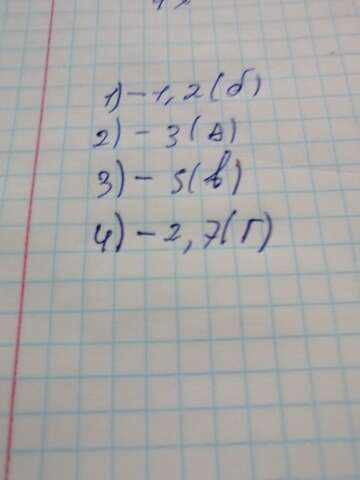 1) - 1, 2 (б)
2) - 3 (А)
3) - 5 (в)
4) - 2, 7 (Г)